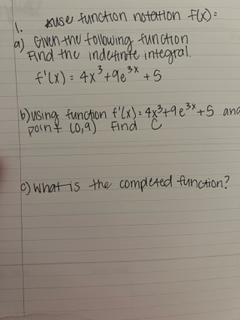 1. *use function notation f(x)=
a) Given the following function
Find the indefinite integral.
f'(x) = 4x³+9e³ˣ +5
b) using function f'(x)= 4x³+9e³ˣ+5 and
point (0,9) find C
c) What is the completed function?